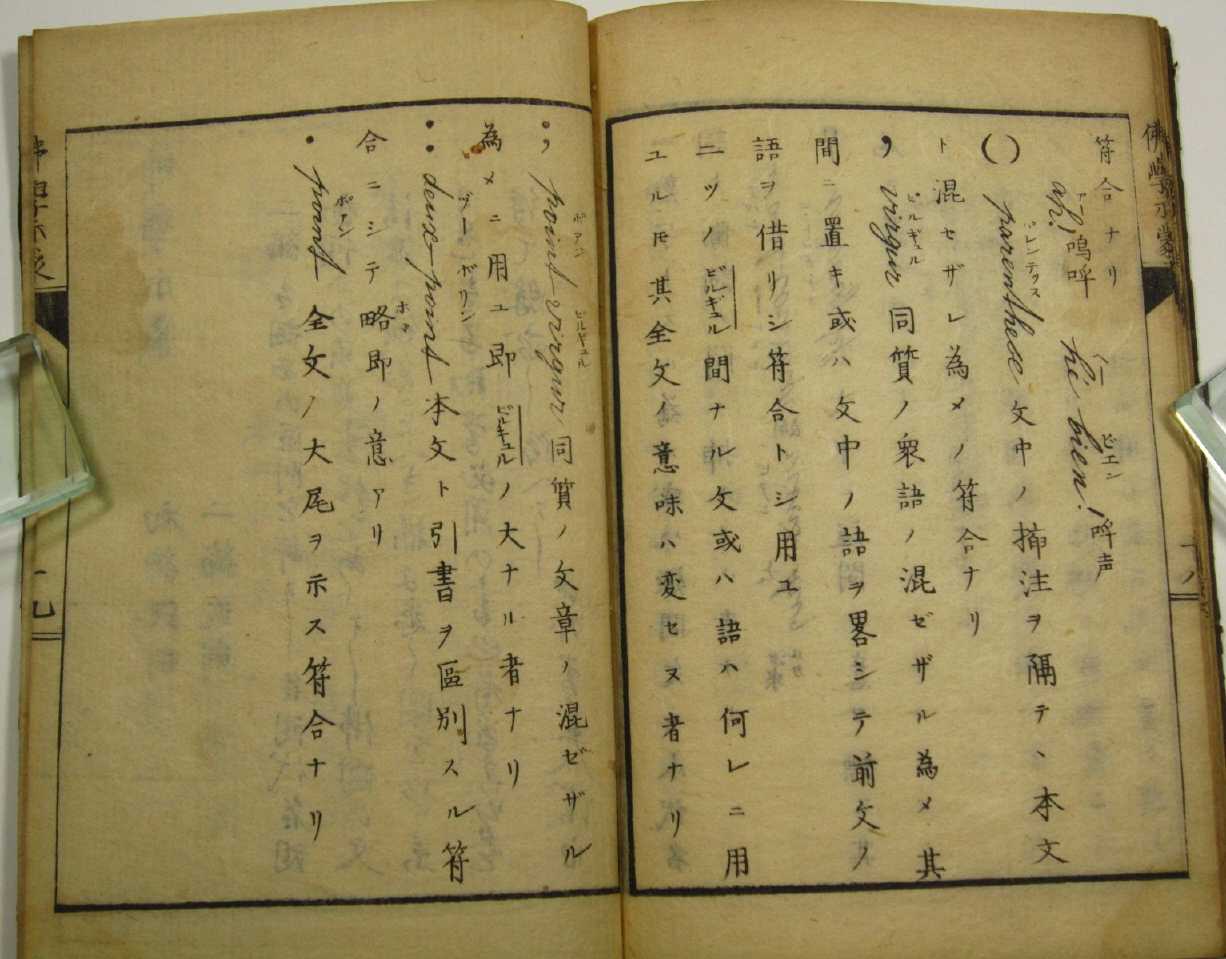 符合ナリ
ah! 嗚呼 hé bien! 呼声
アー ヘー ビエン
() parenthese 文中ノ挿注ヲ隔テヽ本文
ト混セザレ為メノ符合ナリ
, virgur 同質ノ衆語ノ混ゼザル為メ其
ビルギュル
間ニ置キ或ハ文中ノ語ヲ畧シテ前文ノ
語ヲ借リシ符合トシ用ユ
二ツノビルギュル間ナル文或ハ語ハ何レニ用
ユルモ其全文ノ意味ハ変セヌ者ナリ
; point-virgur 同質ノ文章ノ混ゼザル
ポアン ビルギュル
為メニ用ユ即ビルギュルノ大ナル者ナリ
: deux-point 本文ト引書ヲ區別スル符
合ニシテ略即ノ意アリ
. point 全文ノ大尾ヲ示ス符合ナリ
ポアン